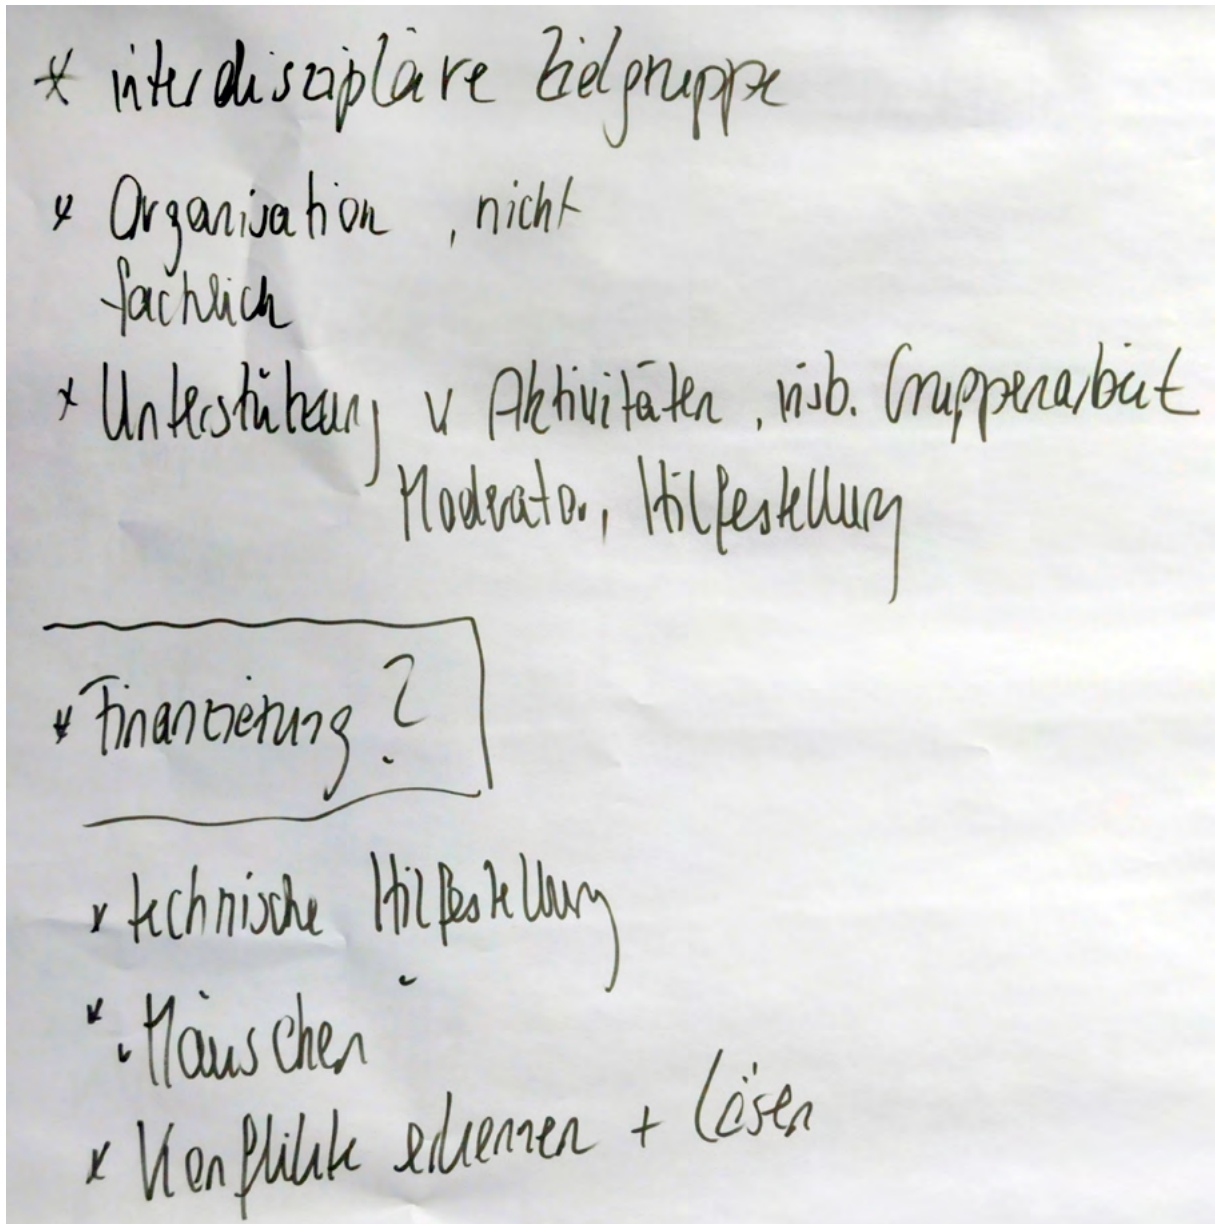 * interdiszipläre Zielgruppe
* Organisation, nicht
fachlich
* Unterstützung v Aktivitäten, insb. Gruppenarbeit
Moderator, Hilfestellung
* Finanzierung?
* technische Hilfestellung
* Mäuschen
* Konflikte erkennen + lösen